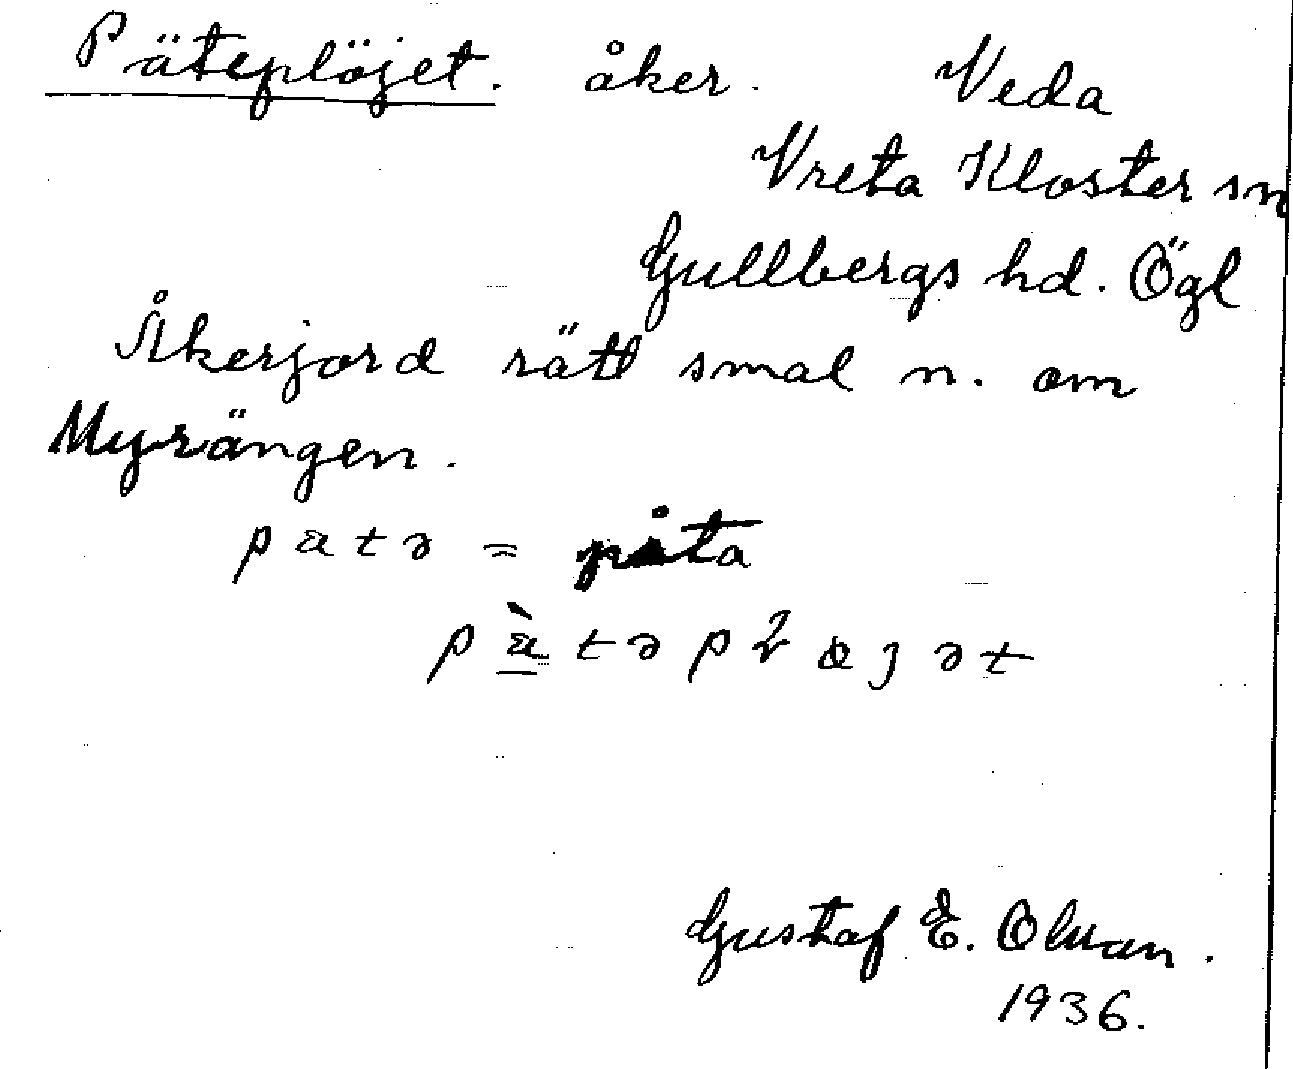 Päteplöjet. åker. Veda
Vreta Kloster sn
Gullbergs hd. Ögl
Åkerjord rätt smal n. om
Myrängen.
patə = påta
Gustaf E. Olsson.
1936.